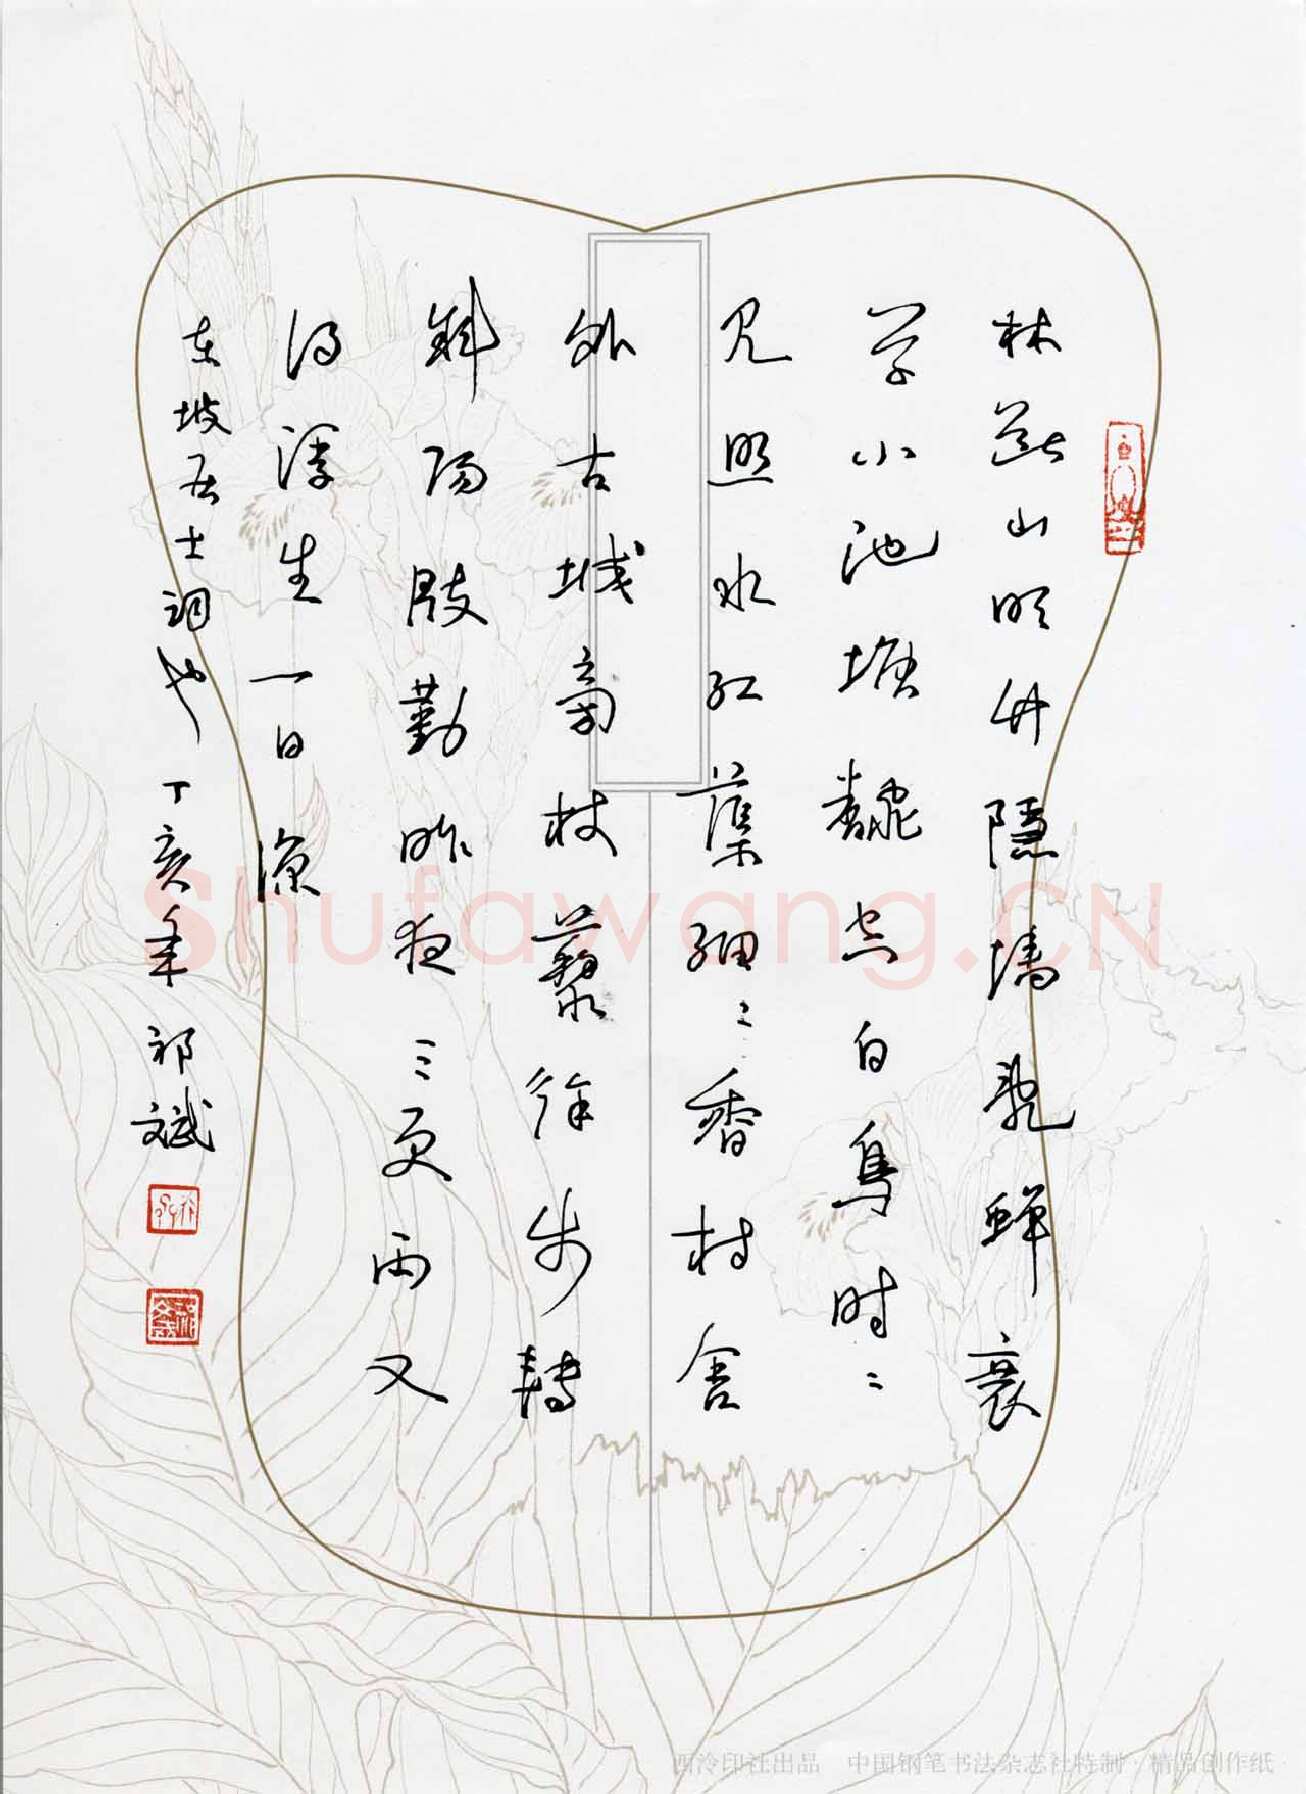 林断山明竹隐墙乱蝉衰
草小池塘飜空白鸟时〻
见照水红蕖细〻香村舍
外古城旁杖藜徐步轉
斜阳殷勤昨夜三更雨又
得浮生一日涼
东坡居士词也 丁亥年 祁斌
Shufawang.CN
西泠印社出品 中国钢笔书法杂志社特制·精品创作纸